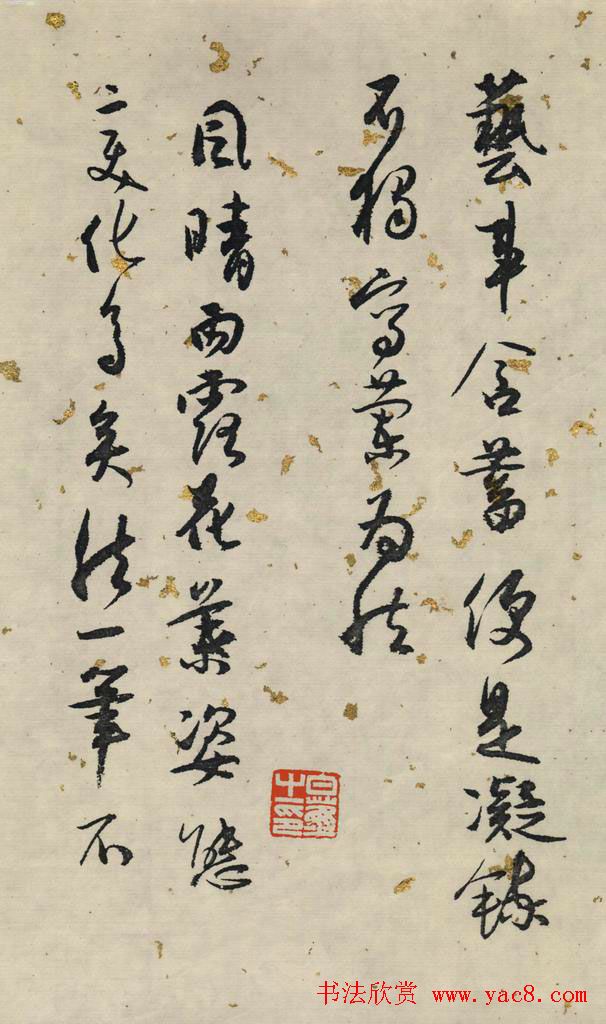 藝事含蓄便是凝鍊
不獨寫蘭為然
風晴雨露花葉姿態
之变化多矣然一筆不
书法欣赏 www.yac8.com